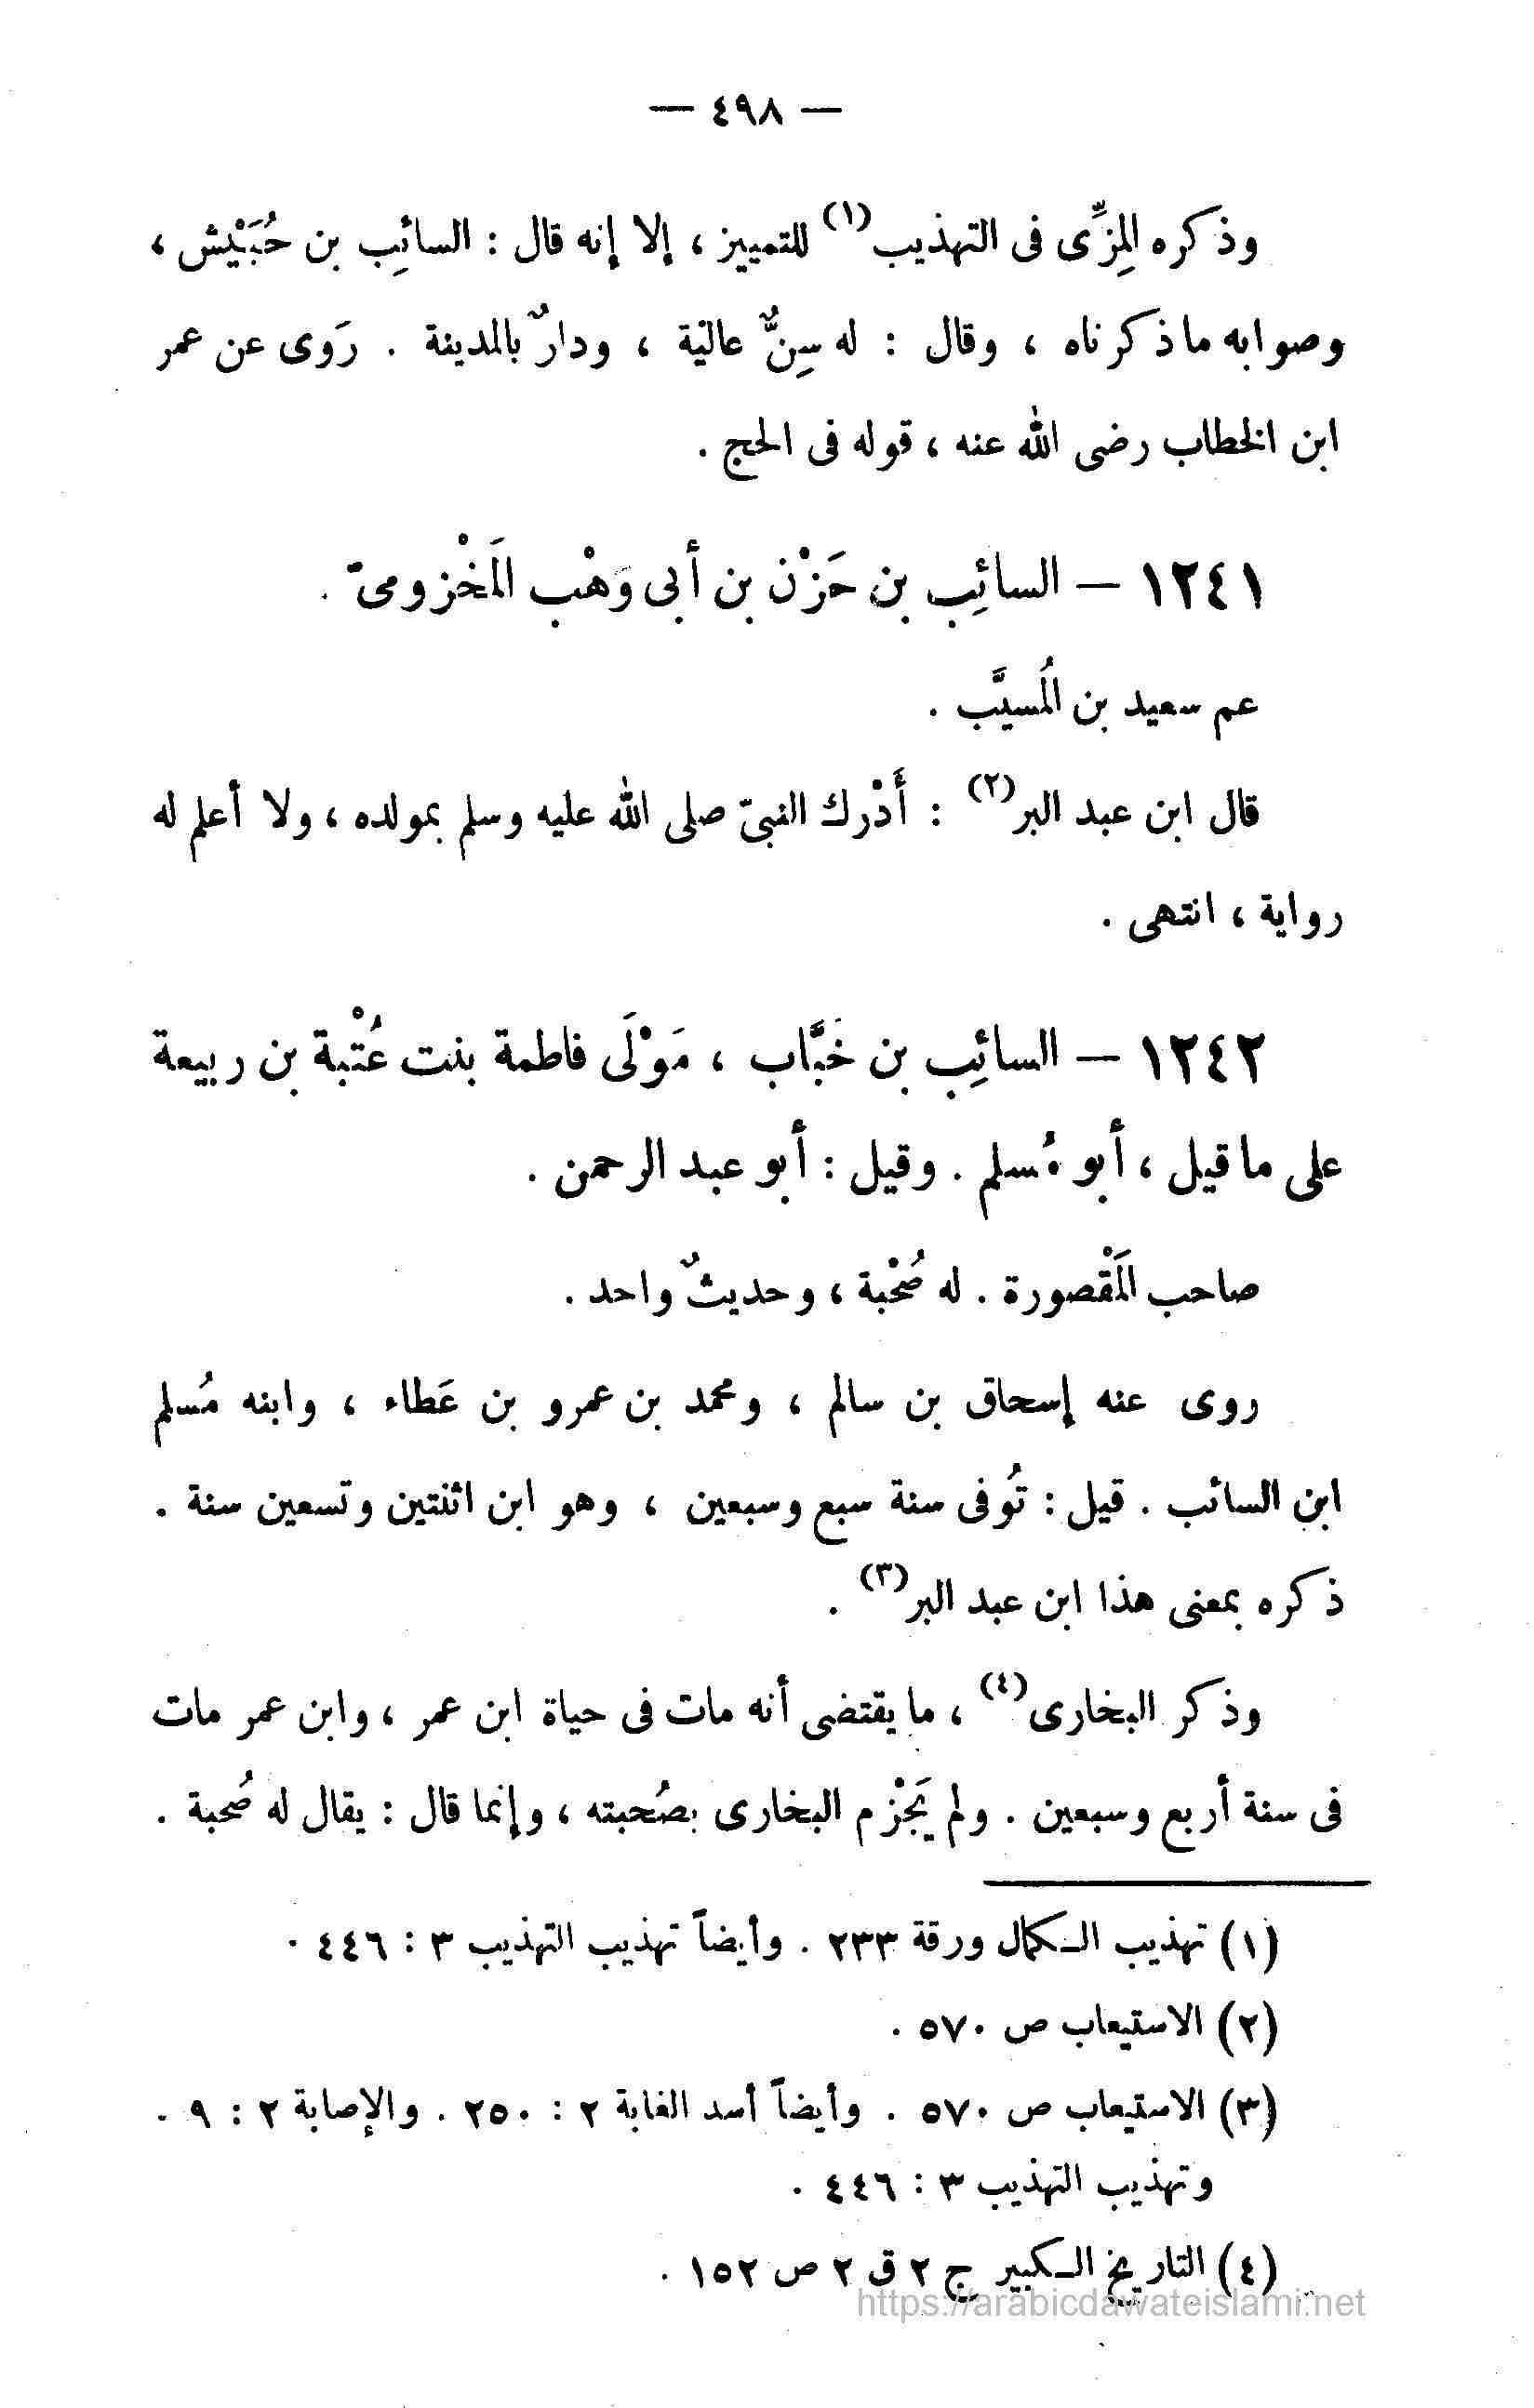 — ٤٩٨ —
وذكره المِزِّى فى التهذيب(١) للتمييز ، إلا إنه قال : السائِب بن حُبَيْش ،
وصوابه ماذكرناه ، وقال : له سِنٌّ عالية ، ودارٌ بالمدينة . رَوى عن عمر
ابن الخطاب رضى الله عنه ، قوله فى الحج .
١٢٤١ — السائِب بن حَزْن بن أبى وَهْب المَخْزومىّ .
عم سعيد بن المُسيَّب .
قال ابن عبد البر(٢) : أَدْرك النبىّ صلى الله عليه وسلم بمولده ، ولا أعلم له
رواية ، انتهى .
١٢٤٢ — السائِب بن خَبَّاب ، مَوْلَى فاطمة بنت عُتْبة بن ربيعة
على ماقيل ، أبو مُسلم . وقيل : أبو عبد الرحمن .
صاحب المَقْصورة . له صُحْبة ، وحديثٌ واحد .
روى عنه إسحاق بن سالم ، ومحمد بن عمرو بن عَطاء ، وابنه مُسلم
ابن السائب . قيل : تُوفى سنة سبع وسبعين ، وهو ابن اثنتين وتسعين سنة .
ذكره بمعنى هذا ابن عبد البر(٣) .
وذكر البخارى(٤) ، مايقتضى أنه مات فى حياة ابن عمر ، وابن عمر مات
فى سنة أربع وسبعين . ولم يَجْزم البخارى بصُحبته ، وإنما قال : يقال له صُحبة .
(١) تهذيب الكمال ورقة ٢٣٣ . وأيضاً تهذيب التهذيب ٣ : ٤٤٦ .
(٢) الاستيعاب ص ٥٧٠ .
(٣) الاستيعاب ص ٥٧٠ . وأيضاً أسد الغابة ٢ : ٢٥٠ . والإصابة ٢ : ٩ .
وتهذيب التهذيب ٣ : ٤٤٦ .
(٤) التاريخ الكبير ج ٢ ق ٢ ص ١٥٢ .
https://arabicdawateislami.net